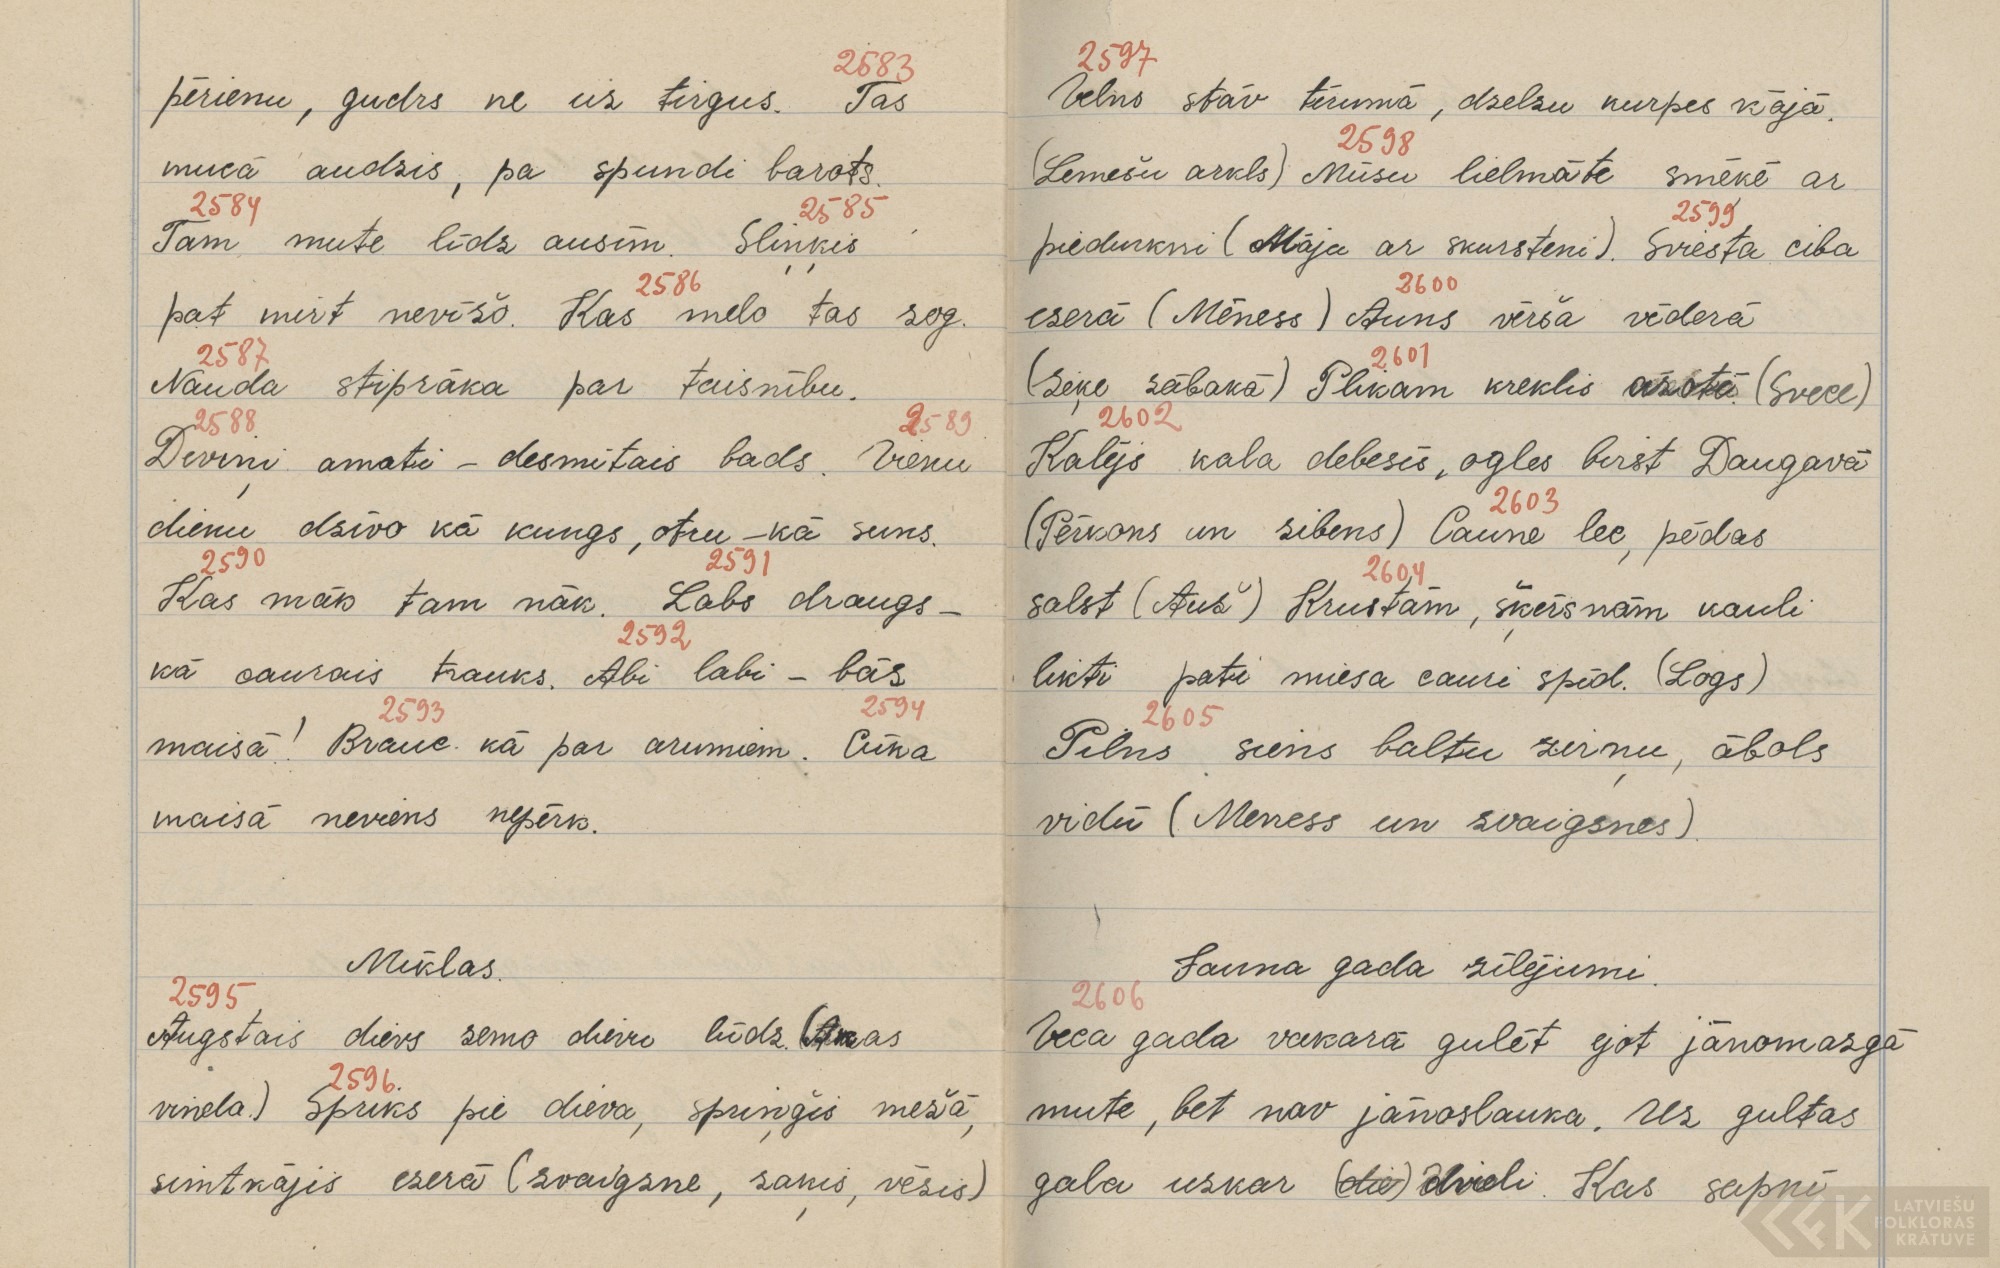 2583
pērienu, gudrs ne uz tirgus. Tas
mucā audzis, pa spundi barots.
2584 2585
Tam mute līdz ausīm. Sliņķis
2586
pat mirt nevīžo. Kas melo tas zog.
2587
Nauda stiprāka par taisnību.
2588 2589
Deviņi amati – desmitais bads. Vienu
dienu dzīvo kā kungs, otru – kā suns.
2590 2591
Kas māk tam nāk. Labs draugs –
2592
kā caurais trauks. Abi labi – bāz
2593 2594
maisā! Brauc kā par arumiem. Cūka
maisā neviens nepērk.
Mīklas.
2595
Augstais dievs zemo dievu lūdz. (Akas
vinda.) 2596.
Sprīks pie dieva, spriņģis mežā,
simtkājis ezerā (zvaigzne, zaķis, vēzis)
2597
Velns stāv tīrumā, dzelzu kurpes kājā.
2598
(Lemešu arkls) Mūsu lielmāte smēķē ar
2599
piedurkni (Māja ar skursteni). Sviesta ciba
2600
ezerā (Mēness) Auns vērša vēderā
2601
(zeķe zābakā) Plikam kreklis azotē. (Svece)
2602
Kalējs kala debesīs, ogles birst Daugavā
2603
(Pērkons un zibens) Caune lec, pēdas
2604
salst (Auž) Krustām, šķērsnām kauli
likti pati miesa cauri spīd. (Logs)
2605
Pilns siens baltu zirņu, ābols
vidū (Meness un zvaigznes).
Jauna gada zīlējumi.
2606
Veca gada vakarā gulēt ejot jānomazgā
mute, bet nav jānoslauka. Uz gultas
gala uzkar dvieli. Kas sapnī
LATVIEŠU
FOLKLORAS
KRĀTUVE